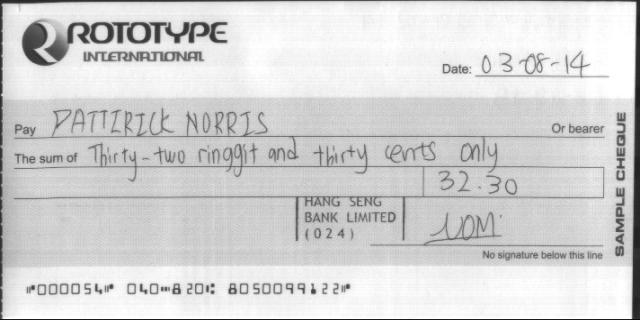 ROTOTYPE
INTERNATIONAL
Date: 03-08-14
Pay PATTIRICK NORRIS Or bearer
The sum of Thirty-two ringgit and thirty cents only
32.30
HANG SENG
BANK LIMITED
(024)
No signature below this line
SAMPLE CHEQUE
⑈000054⑈ 040⑉820⑆ 8050099122⑈